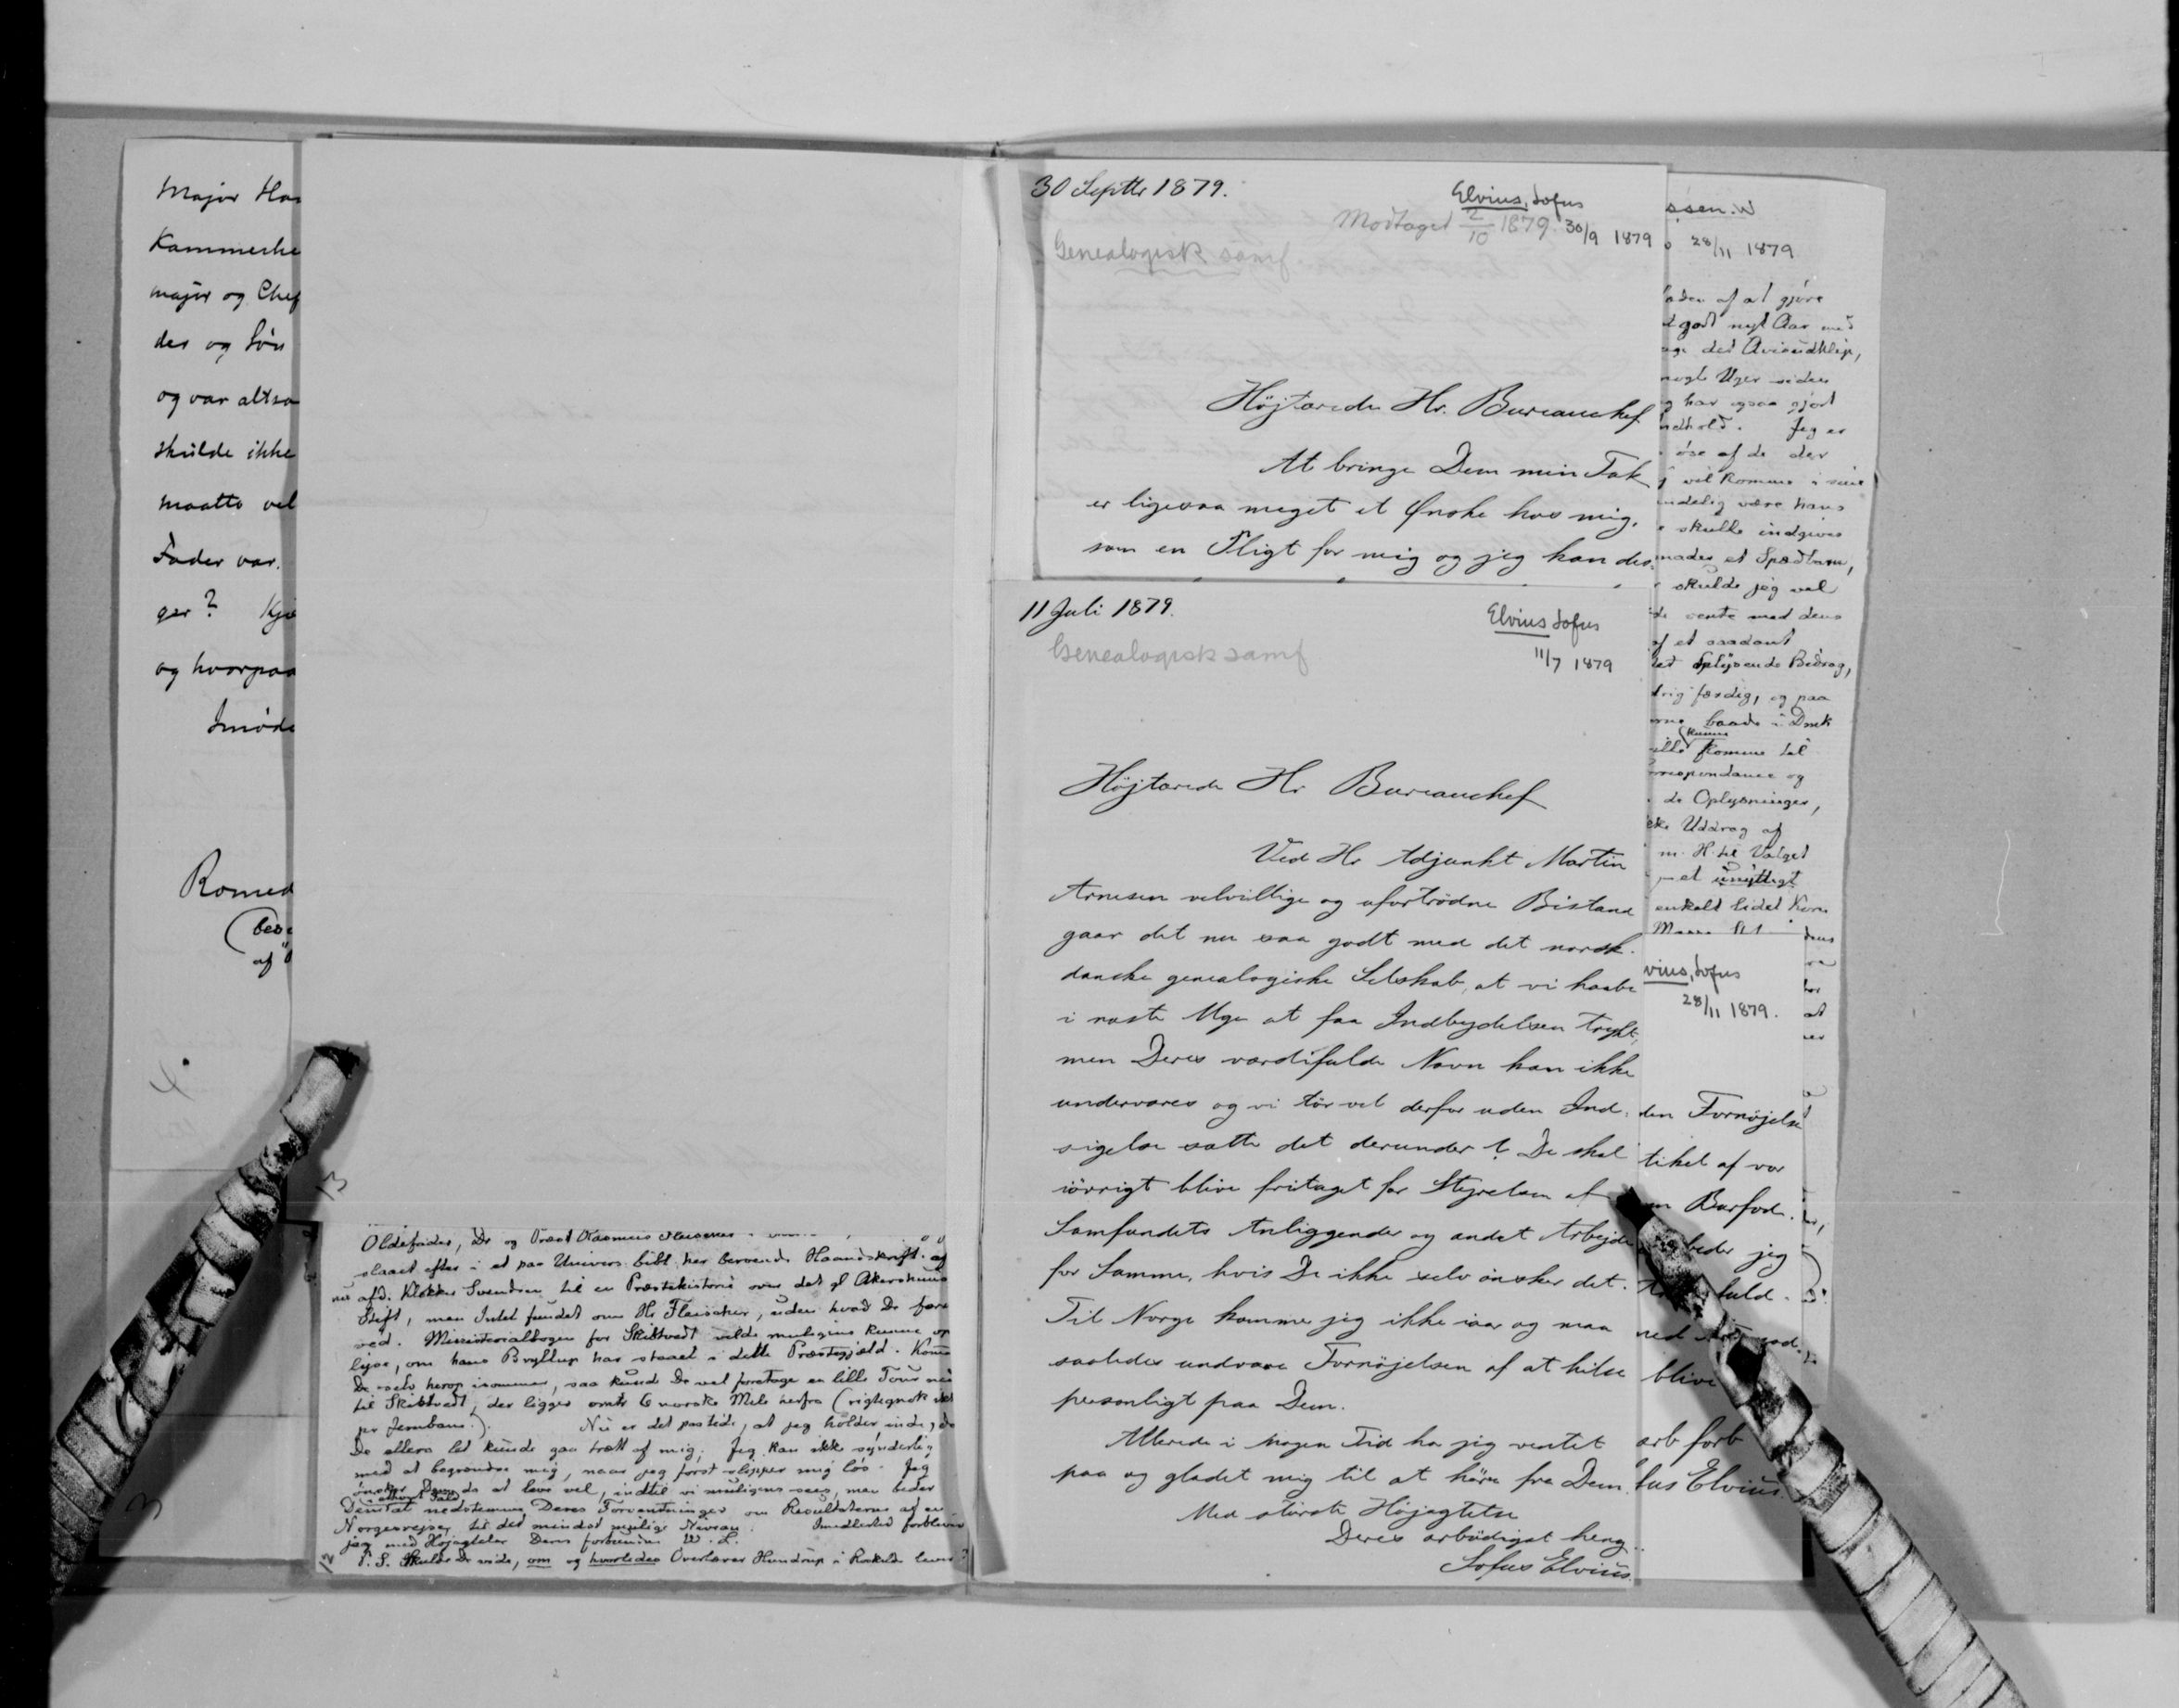 Major Han
Kammerhe
major og Chef
der og Søn
og var altsa
skulde ikke
maatte vel
Fader var.
ger? Kje
og hvorpaa
Imøde
Romed
(bes
af
4
13
Oldefader, Dr og Provst Rasmus
slaaet efter i et paa Univers. bibl. her beroende Haandskrift af
nu afd. Klokker Svendsen til en Præstehistorie over det gl Akershuus
Stift, men Intet fundet om Hr. Fleischer, uden hvad De før
ved. Ministerialbogen for Skibtvedt vilde muligens kunne op
lyse, om hans Bryllup har staaet i dette Præstegjæld. Kom
De selv herop isommer, saa kunde De vel foretage en lille Tour ned
til Skibtvedt, der ligger omtr 6 norske Mile herfra (rigtignok ikke
pr Jernbane.). Nu er det paatide, at jeg holder inde, da
De ellers let kunde gaa træt af mig; Jeg kan ikke synderlig
med at begrændse mig, naar jeg først slipper mig løs. Jeg
ønsker Dem da at leve vel, indtil vi muligens sees, men beder
i ethvert Fald
Dem at nedstemme Deres Forventninger om Resultaterne af en
Norgesrejse til det mindst mulige Niveau. Imidlertid forbliver
jeg med Højagtelse Deres forbundne W. L.
P. S. Skulde De vide, om og hvorledes Overlærer Hundrup i Roskilde lever?
3
12
30 Septbr 1879.
Elvius, Sofus
Modtaget 2/10 1879. 30/9 1879
Genealogisk samf
Højtærede Hr. Bureauchef
At bringe Dem min Tak
er ligesaa meget et Ønske hos mig,
som en Pligt for mig og jeg kan des
11 Juli 1879.
Elvius Sofus
Genealogisk samf
11/7 1879
Højtærede Hr Bureauchef
Ved Hr Adjunkt Martin
Arnesen velvillige og ufortrødne Bistand
gaar det nu saa godt med det norsk-
danske genealogiske Selskab, at vi haabe
i næste Uge at faa Indbydelsen trykt,
men Deres værdifulde Navn kan ikke
undværes og vi tør vel derfor uden Ind-
sigelse sætte det derunder? De skal
iøvrigt blive fritaget for Styrelsen af
Samfundets Anliggender og andet Arbejde
for Samme, hvis De ikke selv ønsker det.
Til Norge kommer jeg ikke iaar og maa
saaledes undvære Fornøjelsen af at hilse
personligt paa Dem.
Allerede i nogen Tid ha jeg ventet
paa og glædet mig til at høre fra Dem.
Med største Højagtelse
Deres ærbødigst heng..
Sofus Elvius.
ssen. W
28/11 1879
aden af at gjøre
et godt nyt Aar med
age det Avisudklip,
nogle Uger siden
g har ogsaa gjort
ndhold. Jeg er
øse af de der
j vil komme i
ndelig være hans
skulle indgives
mades et Spædbarn,
skulde jeg vel
vente med dens
af et saadant
et oplysende Bidrag,
drig færdig, og paa
baade i Druk
kunne
ille komme til
rrespondance og
de Oplysninger,
Uddrag af
m. H. til Valget
et unyttigt
enkelt lidet Korn
vius, Sofus
28/11 1879.
den Fornøjelse
tikel af vor
en Barfod.
beder jeg
fuld.
ned
blive
ærb forb
fus Elvius.